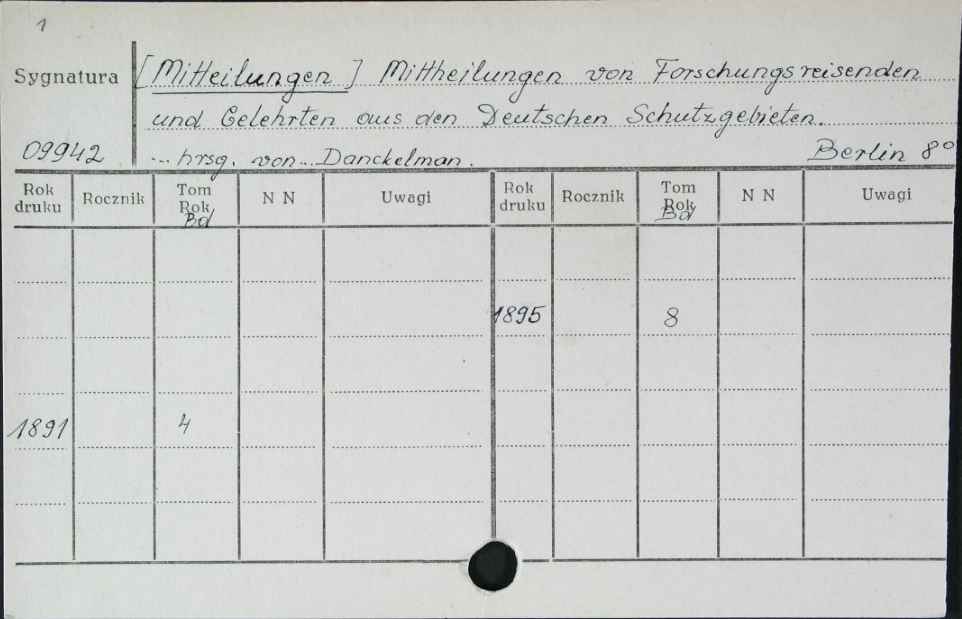 1
Sygnatura [Mitteilungen] Mittheilungen von Forschungsreisenden
und Gelehrten aus den Deutschen Schutzgebieten.
09942 ... hrsg. von ... Danckelman. Berlin 8°
Rok druku Rocznik Tom Rok Bd N N Uwagi Rok druku Rocznik Tom Rok Bd N N Uwagi
1895 8
1891 4